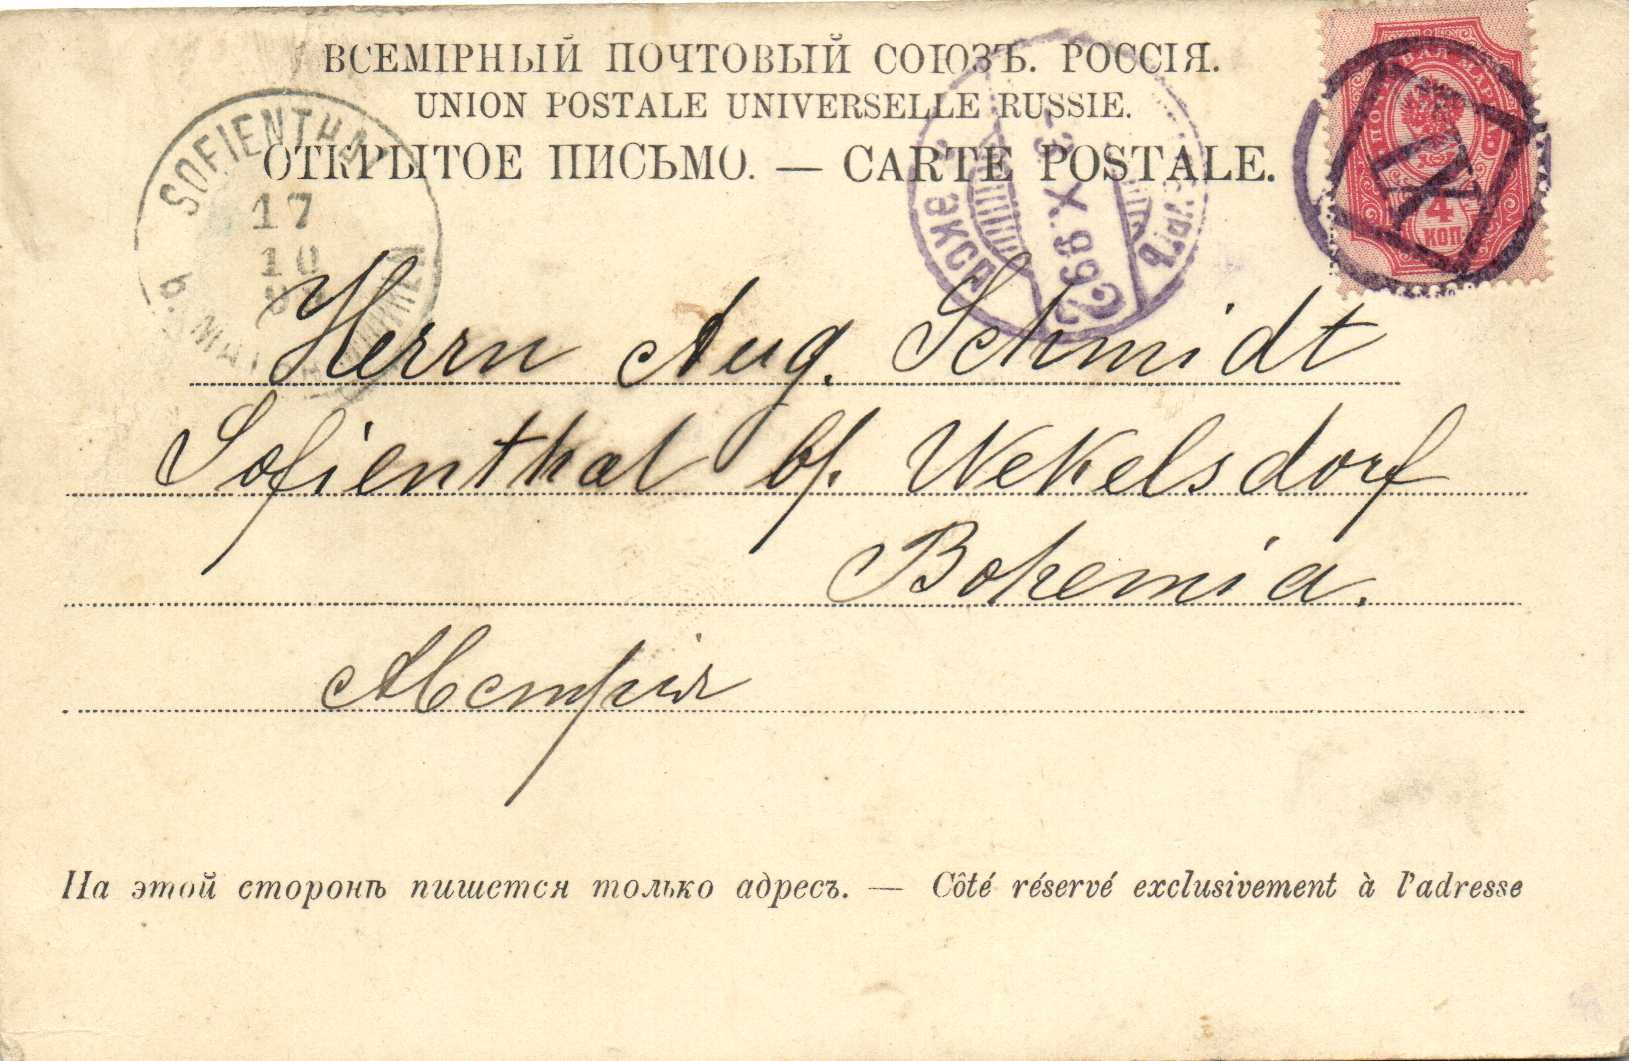 ВСЕМІРНЫЙ ПОЧТОВЫЙ СОЮЗЪ. РОССІЯ.
UNION POSTALE UNIVERSELLE RUSSIE.
ОТКРЫТОЕ ПИСЬМО. — CARTE POSTALE.
SOFIENTHAL
17
10
4
КОП
Herrn Aug. Schmidt
Sofienthal b/. Wekelsdorf
Bohemia.
Австрія
На этой сторонѣ пишется только адресъ. — Côté réservé exclusivement à l'adresse